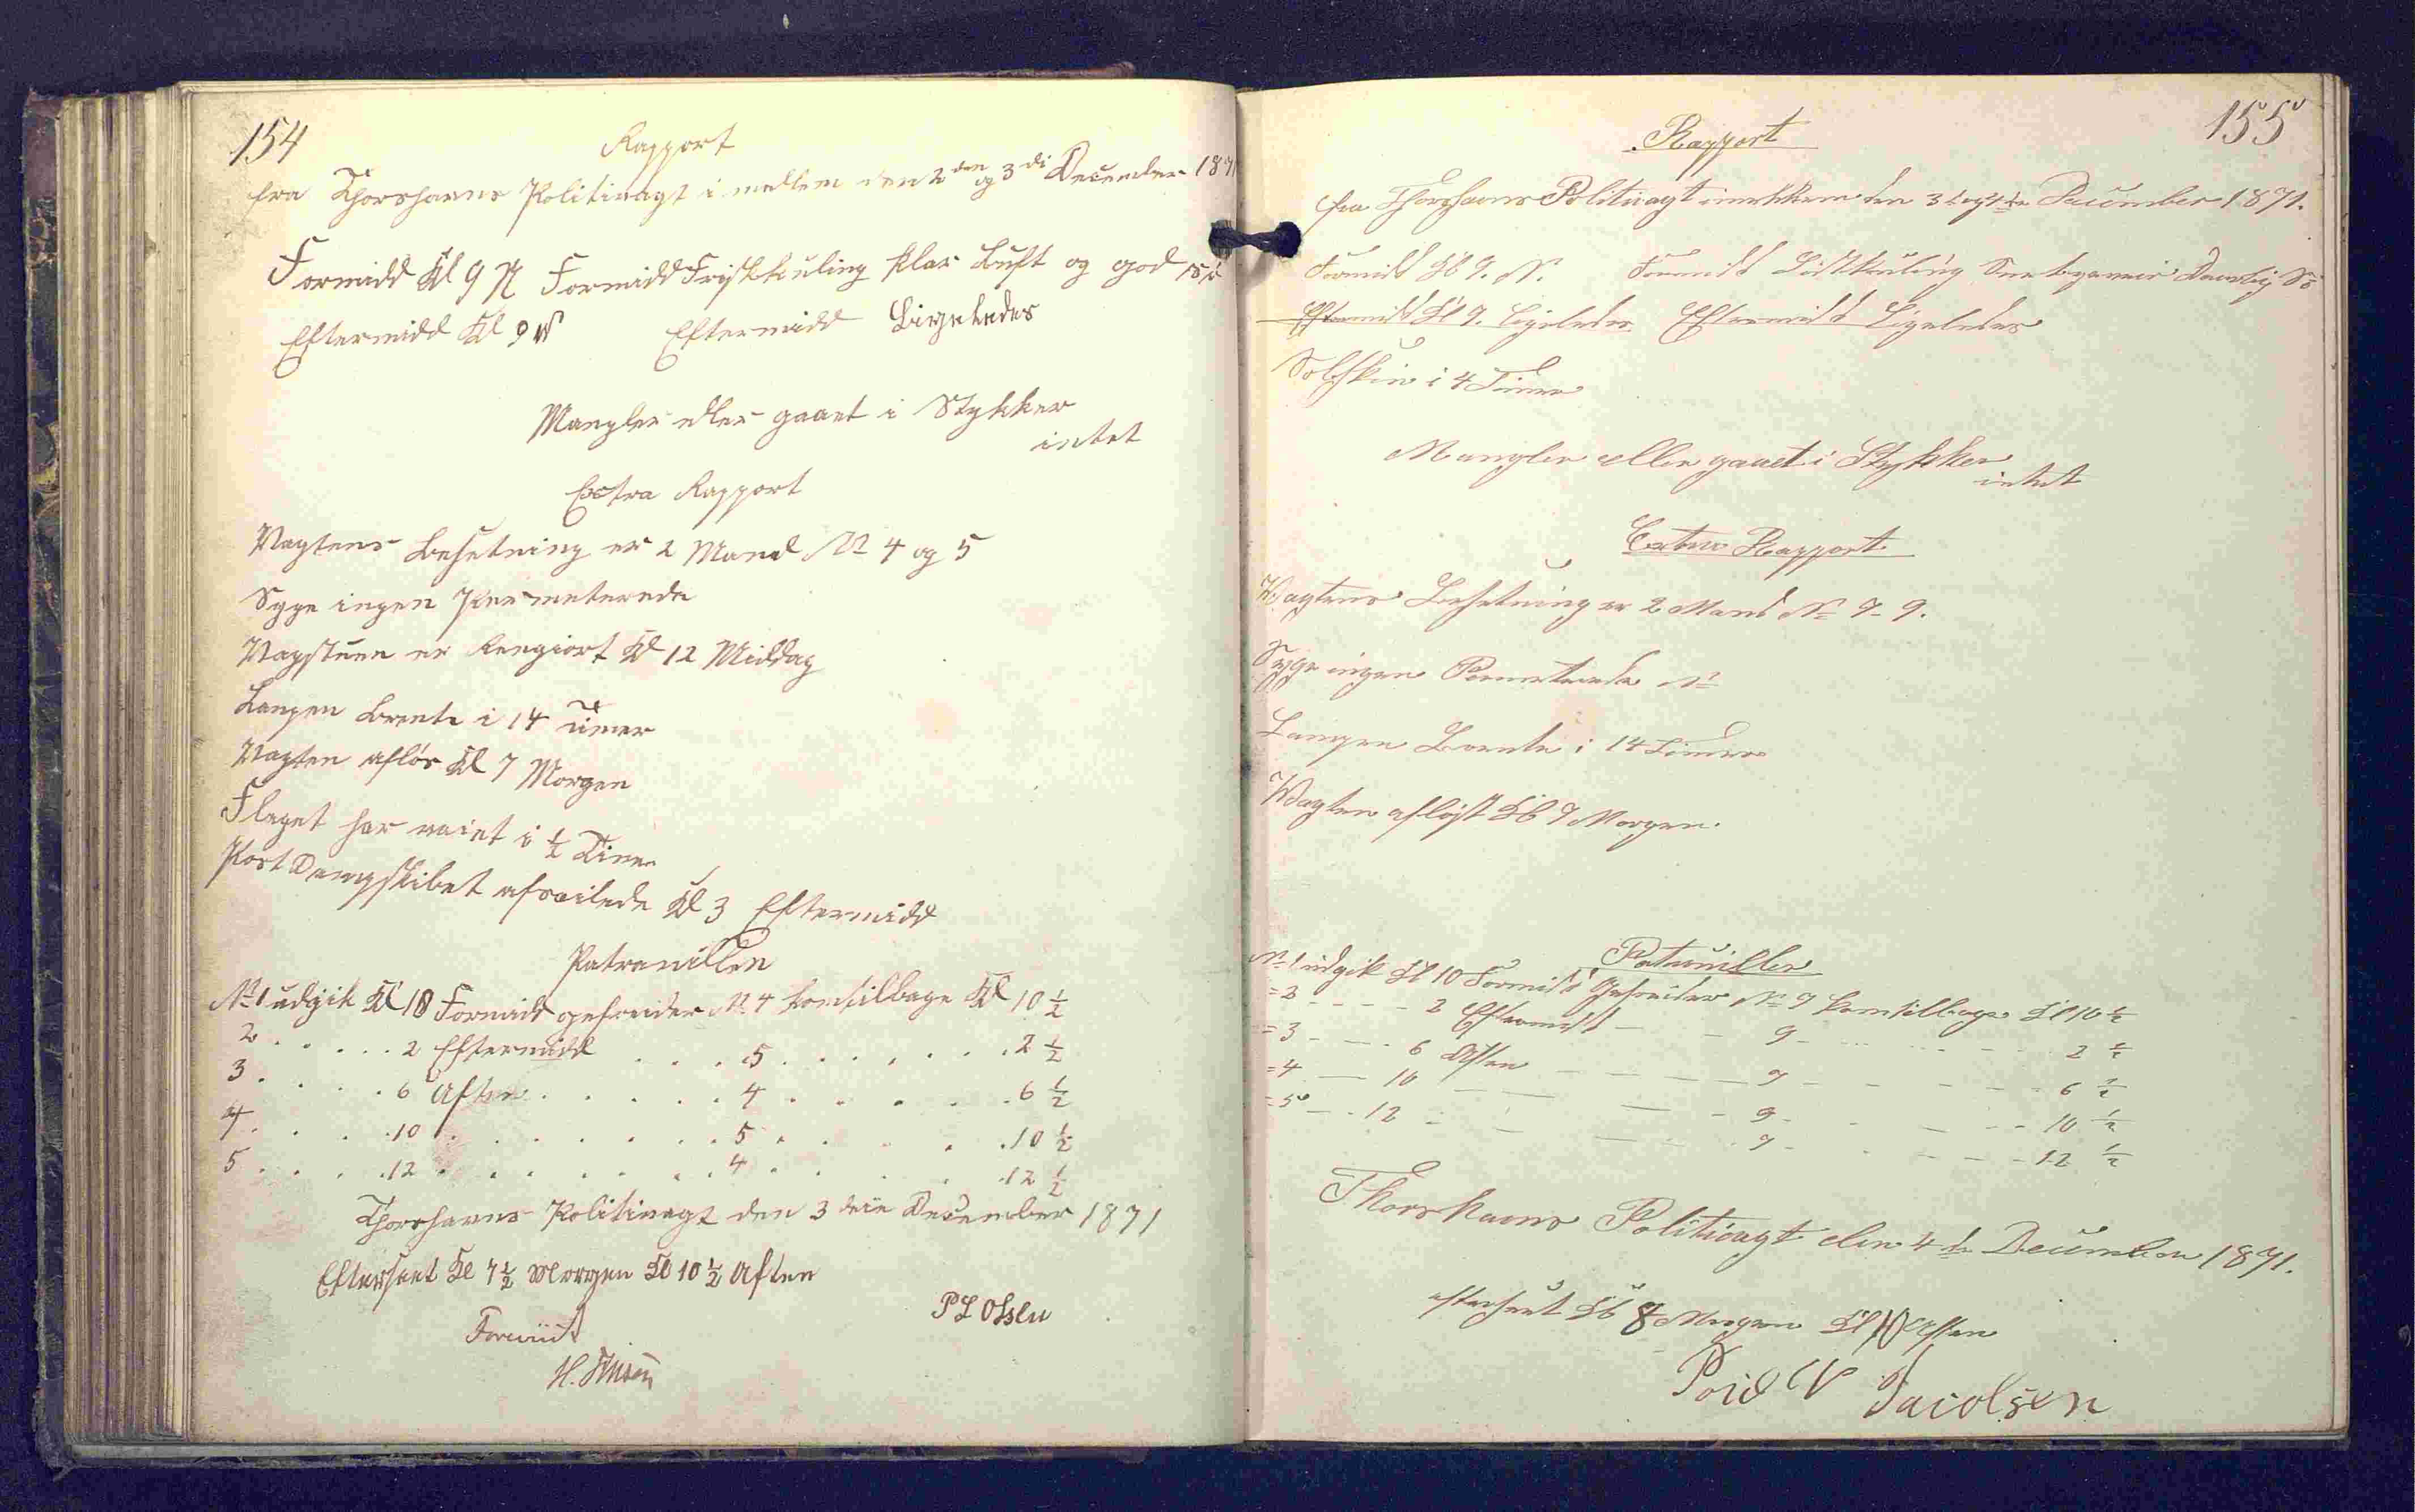 154
Rapport
fra Thorshavns Politivagt i mellem den 2den og 3di December 1871
Formidd Kl 9 N Formidd Friskkuling klar Luft og god
Eftermidd Kl 9 Eftermidd Ligeledes
Mangler eller gaaet i Stykker
intet
Extra Rapport
Vagtens Besetning er 2 Mand No 4 og 5
Syge ingen Permeterede
Vagstuen er Rengiort Kl 12 Middag
Lampen Brente i 14 Timer
Vagten afløs Kl 7 Morgen
Flaget har vaiet i ½ Time
Post Dampskibet afseilede Kl 3 Eftermidd
Patrouillen
No 1 udgik Kl 10 Formidd gefreider No 4 kom tilbage Kl 10 ½
2 . . . . . 2 Eftermidd . . . 5 . . . . . . . 2 ½
3 . . . . . 6 Aften . . . . . 4 . . . . . 6 ½
4 . . . . 10 . . . . . . . 5 . . . . . 10 ½
5 . . . . 12 . . . . . . . 4 . . . . . 12 ½
Thorshavns Politivagt den 3die December 1871
Efterseet Kl 7½ Morgen Kl 10½ Aften
P L Olsen
155
Rapport
fra Thorshavns Politivagt imellem den 3 og 4de December 1871.
Formidd Kl 9. N. Formidd
Eftermidd Kl 9. Ligeledes Eftermidd Ligeledes
Solskin i 4 Timer
Mangler eller gaaet i Stykker
intet
Extra Rapport
Wagtens Besetning er 2 Mand No 7 - 9.
Syge ingen Permeterede No
Lampen Brente i 14 Timer
Wagten afløst Kl 7 Morgen.
Patrouiller
No 1 udgik Kl 10 Formidd Gefreider No 7 kom tilbage Kl 10 ½
= 2 - - - - 2 Eftermidd - - 9 - - - - - 2 ½
= 3 - - - 6 Aften - - - - 7 - - - - - 6 ½
= 4 - - 10 - - - - 9 - - - - 10 ½
= 5 - - 12 - - - - 7 - - - - 12 ½
Thorshavns Politivagt den 4de December 1871.
efterseet Kl 8 Morgen Kl 10 Aften
Poul V Jacobsen